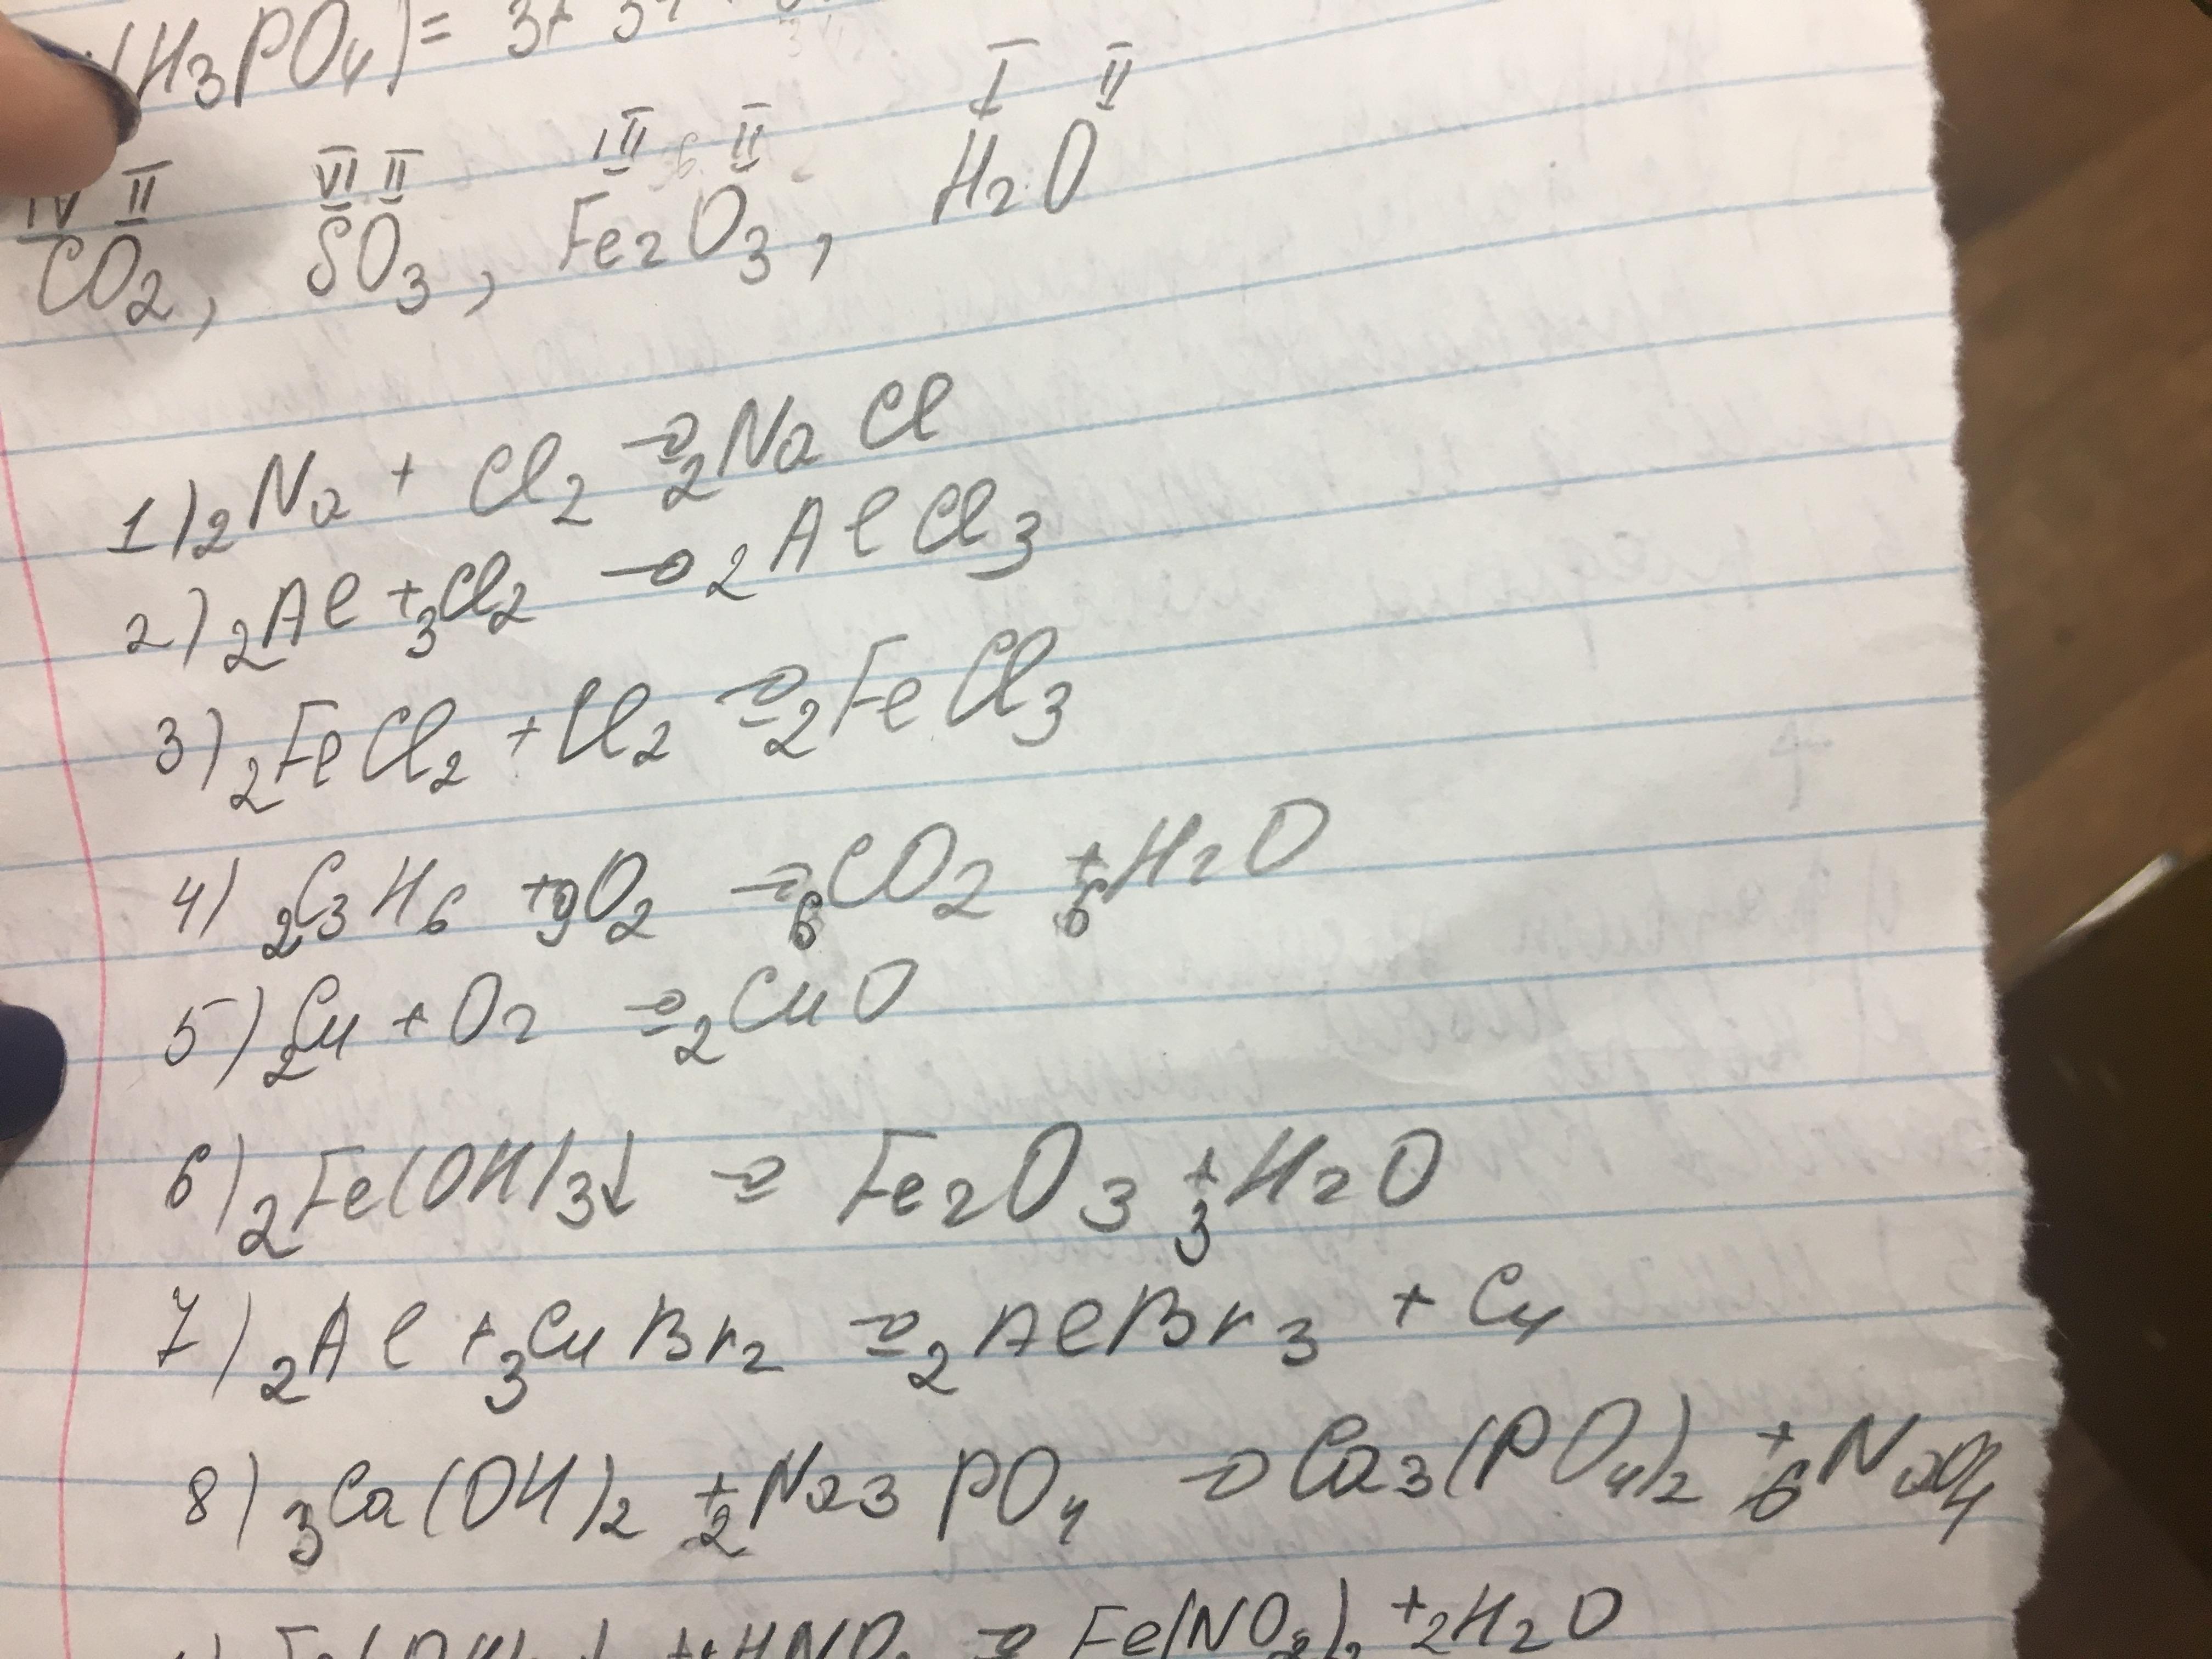 (H₃PO₄) = 3+
IV II VI II III 6 II I II
CO₂, SO₃, Fe₂O₃, H₂O
1) 2Na + Cl₂ → 2NaCl
2) 2Al + 3Cl₂ → 2AlCl₃
3) 2FeCl₂ + Cl₂ → 2FeCl₃
4) 2C₃H₆ + 9O₂ → 6CO₂ + 6H₂O
5) 2Cu + O₂ → 2CuO
6) 2Fe(OH)₃↓ → Fe₂O₃ + 3H₂O
7) 2Al + 3CuBr₂ → 2AlBr₃ + Cu
8) 3Ca(OH)₂ + 2Na₃PO₄ → Ca₃(PO₄)₂ + 6NaOH
→ Fe(NO₃)₂ + 2H₂O